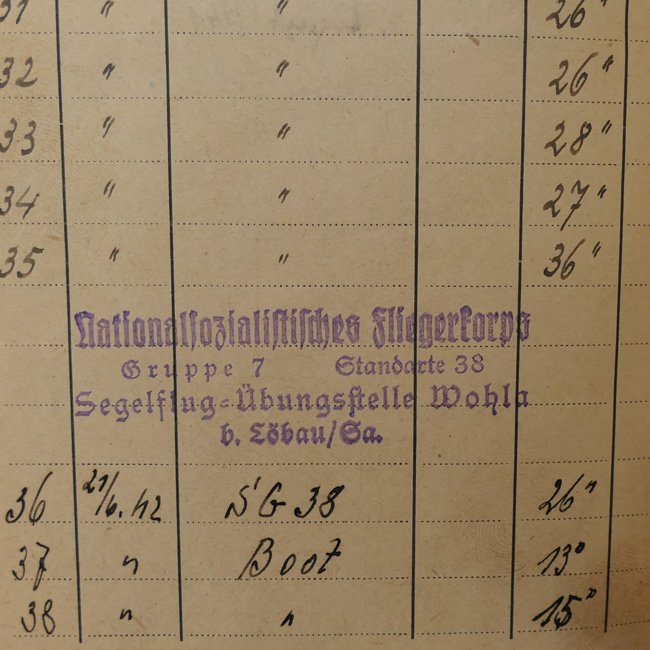 31 " " 26"
32 " " 26"
33 " " 28"
34 " " 27"
35 " " 36"
Nationalsozialistisches Fliegerkorps
Gruppe 7 Standarte 38
Segelflug-Übungsstelle Wohla
b. Löbau/Sa.
36 21/6.42 SG 38 26"
37 " Boot 13"
38 " " 15"